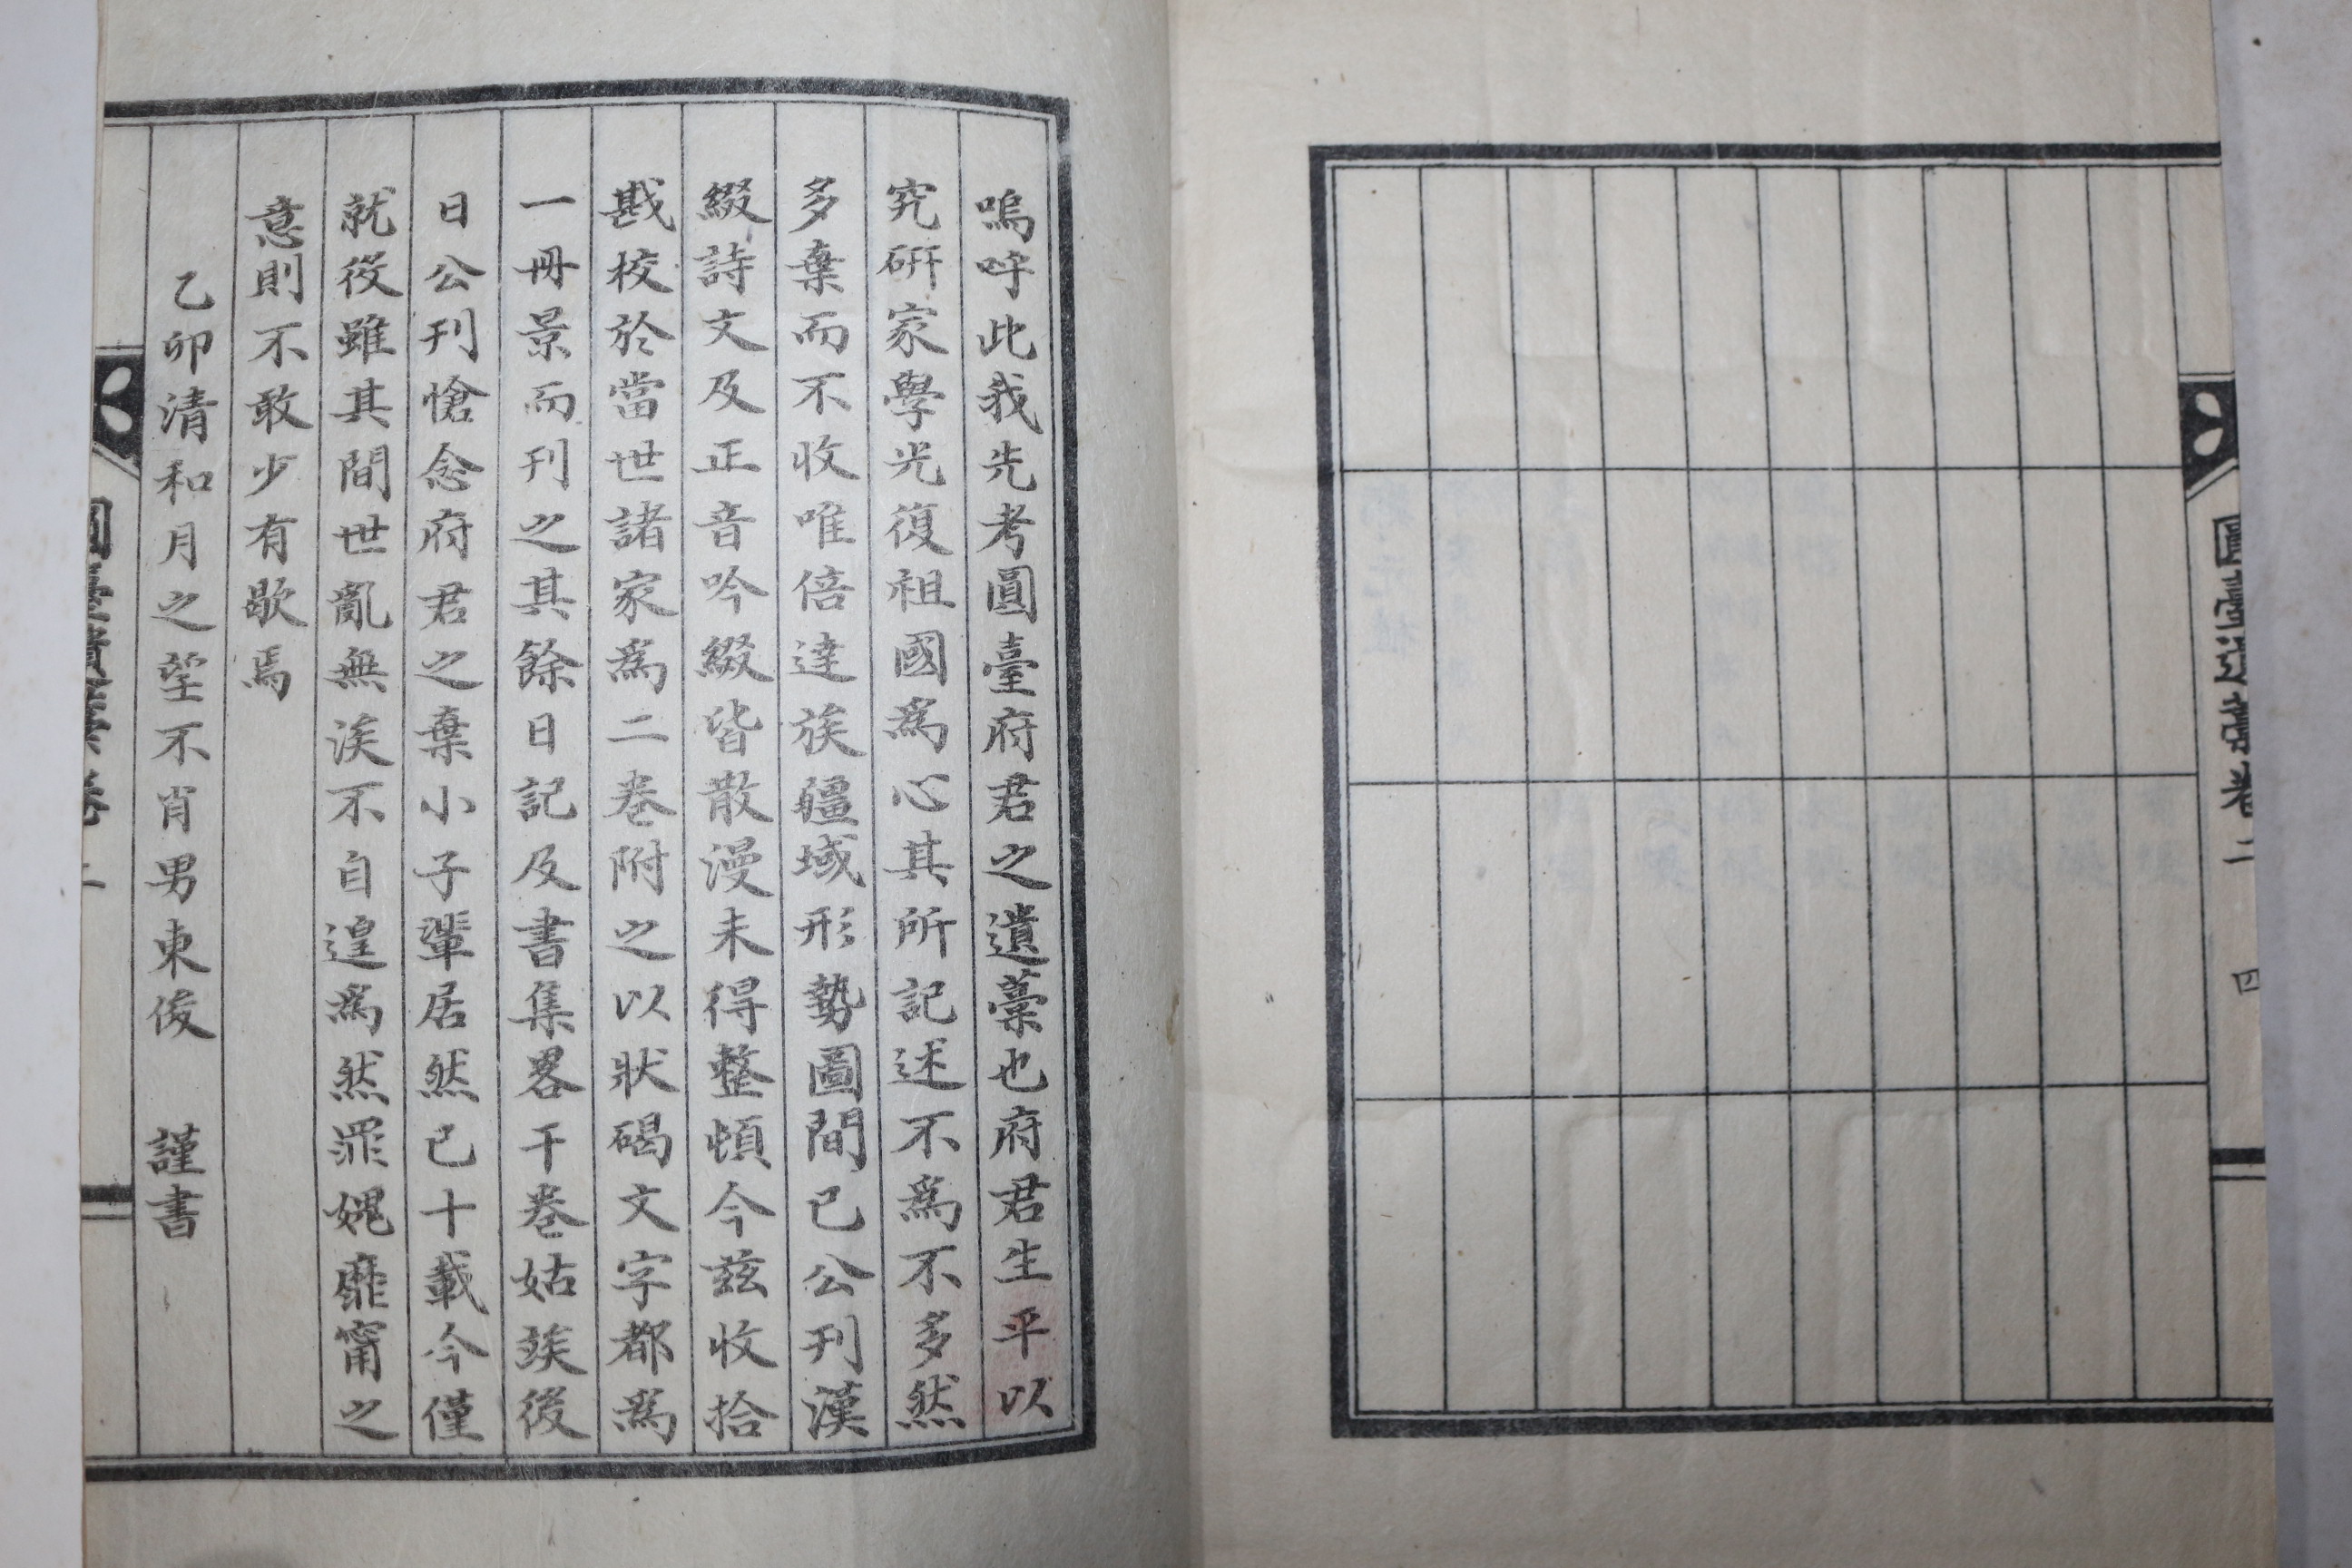 嗚呼此我先考圓臺府君之遺藁也府君生平以
究硏家學光復祖國爲心其所記述不爲不多然
多棄而不收唯倍達族疆域形勢圖間已公刊漢
綴詩文及正音吟綴皆散漫未得整頓今玆收拾
戡校於當世諸家爲二卷附之以狀碣文字都爲
一冊景而刊之其餘日記及書集畧干卷姑竢後
日公刊愴念府君之棄小子輩居然已十載今僅
就役雖其間世亂無涘不自遑爲然罪媿靡甯之
意則不敢少有歇焉
乙卯清和月之望不肖男東俊 謹書
圓臺遺藁卷二
四